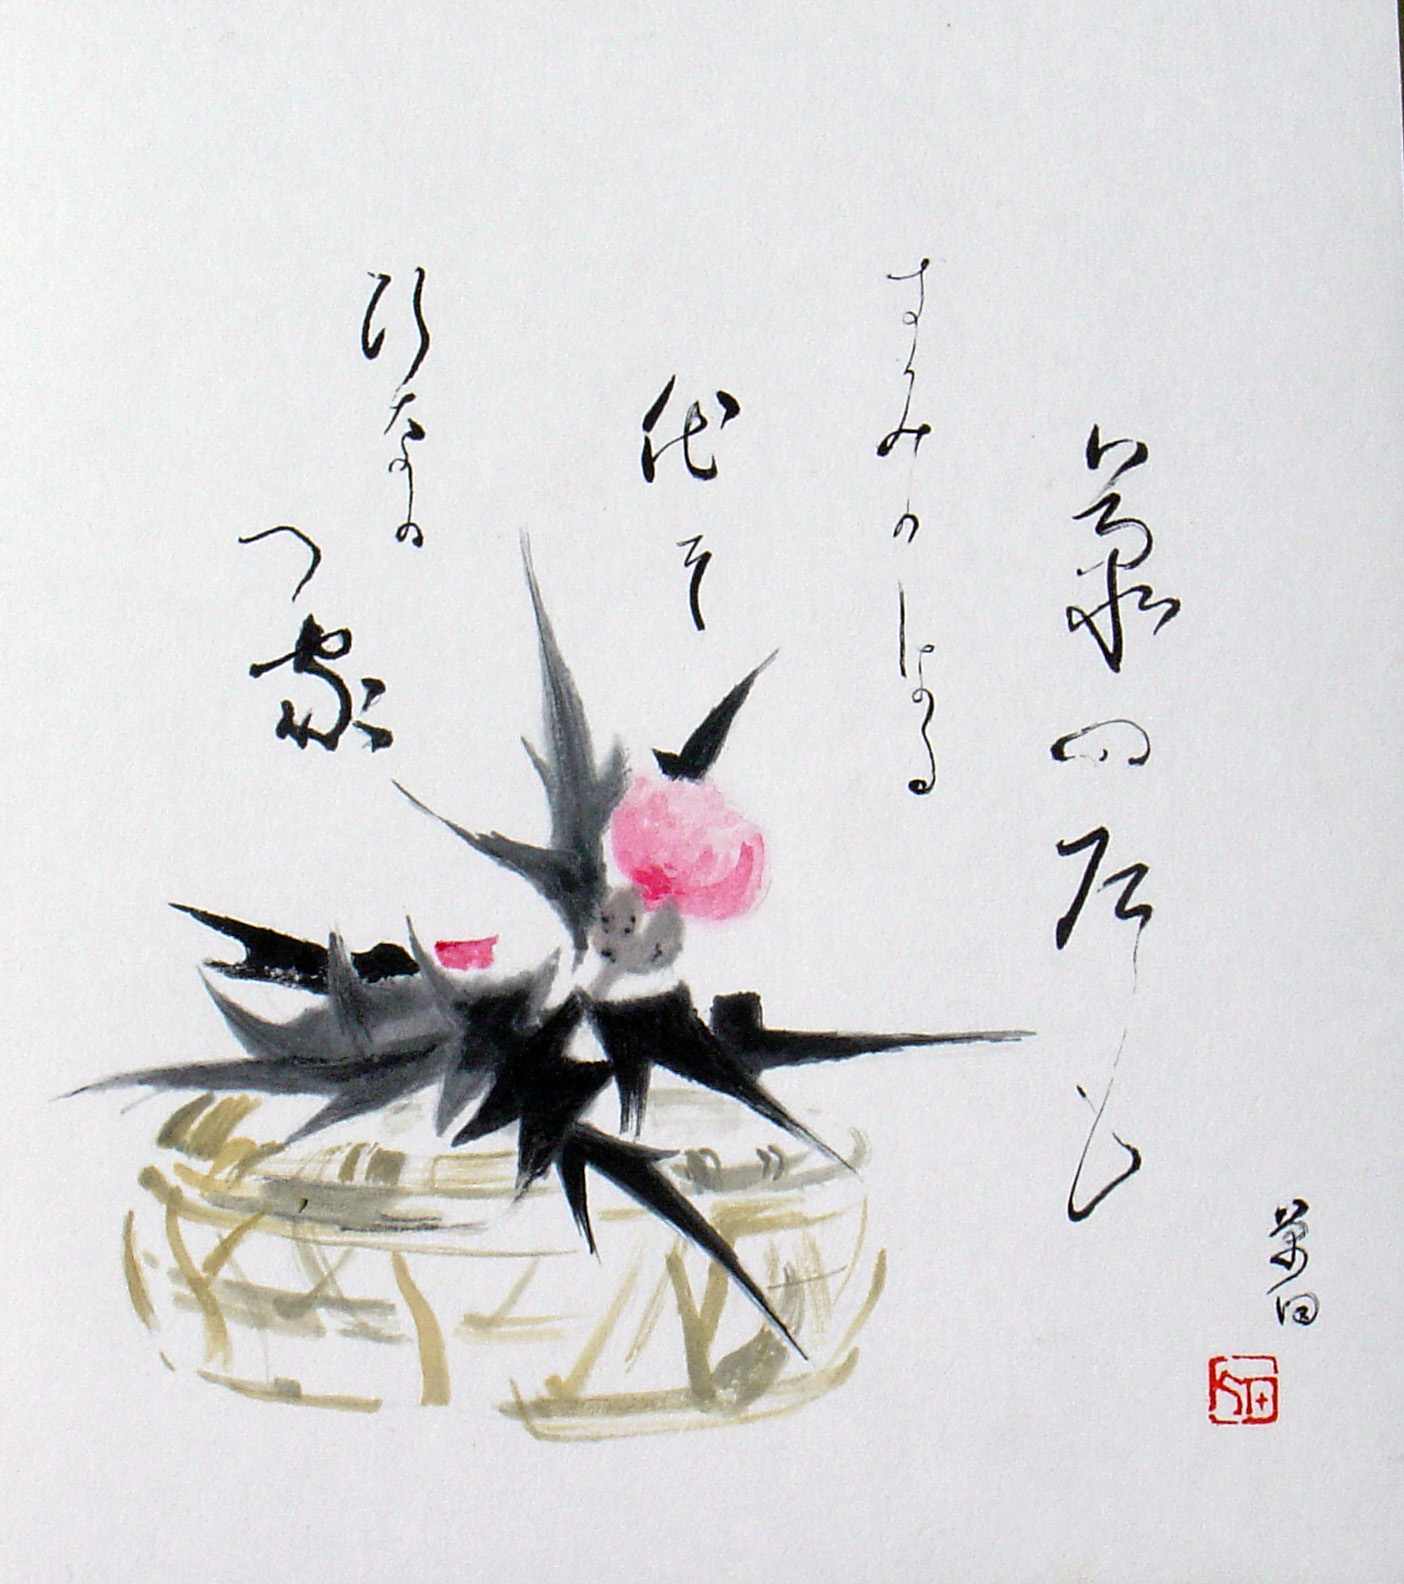 草の戸も
すみかはる
代そ
ひなの
家